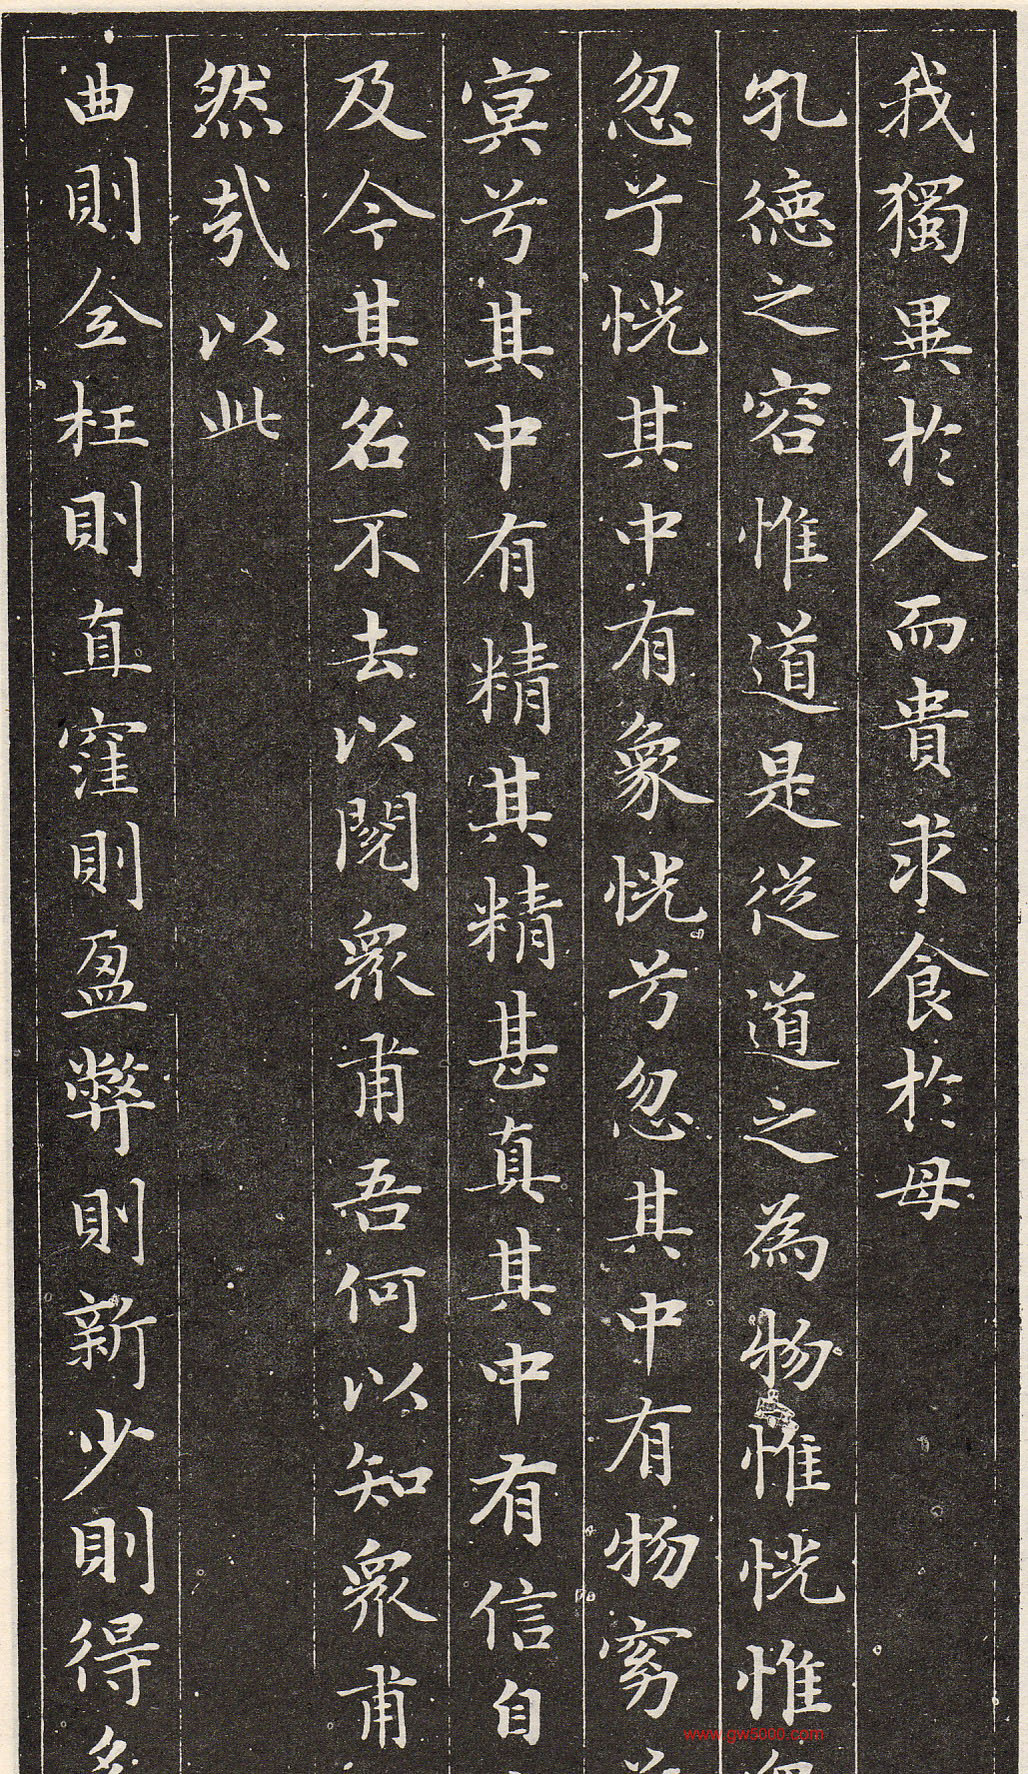 我獨異於人而貴求食於母
孔德之容惟道是從道之為物惟恍惟
忽兮恍其中有象恍兮忽其中有物窈
冥兮其中有精其精甚真其中有信自
及今其名不去以閱眾甫吾何以知眾甫
然哉以此
曲則全枉則直窪則盈弊則新少則得多
www.gw5000.com